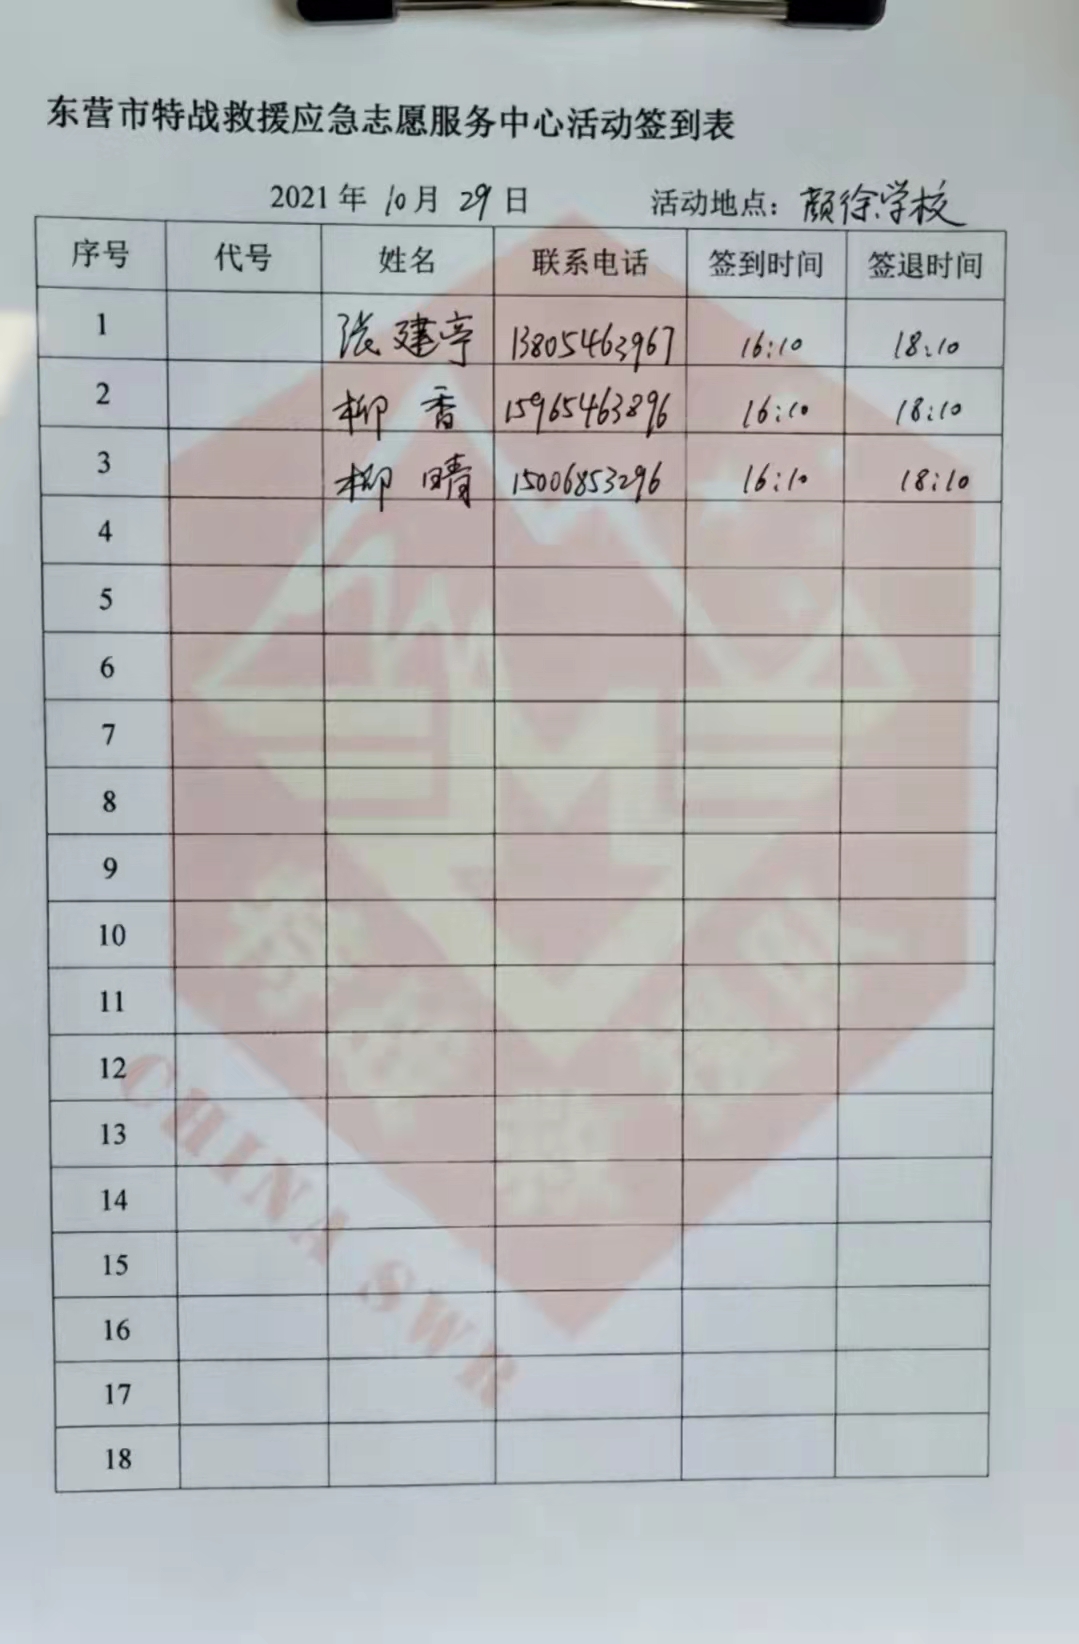 东营市特战救援应急志愿服务中心活动签到表
2021 年 10 月 29 日 活动地点：颜徐学校
序号 代号 姓名 联系电话 签到时间 签退时间
1 张建亭 13805463967 16:10 18:10
2 柳香 15965463896 16:10 18:10
3 柳晴 15006853296 16:10 18:10
4
5
6
7
8
9
10
11
12
13
14
15
16
17
18
CHINA SWR